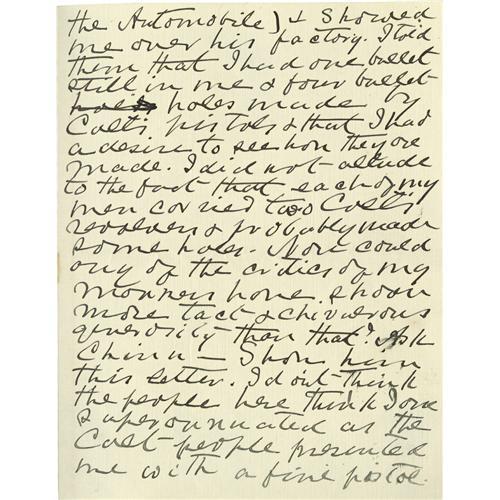 the Automobile) & Showed
me over his factory. I told
them that I had one bullet
still in me & four bullet
holes holes made by
Colts pistols & that I had
a desire to see how they are
made. I did not allude
to the fact that each of my
men carried two Colts
revolvers & probably made
some holes. Now could
any of the critics of my
manners home, shown
more tact & chivalrous
generosity than that? Ask
China — Show him
this letter. I don't think
the people here think I am
superannuated as the
Colt people presented
me with a fine pistol.